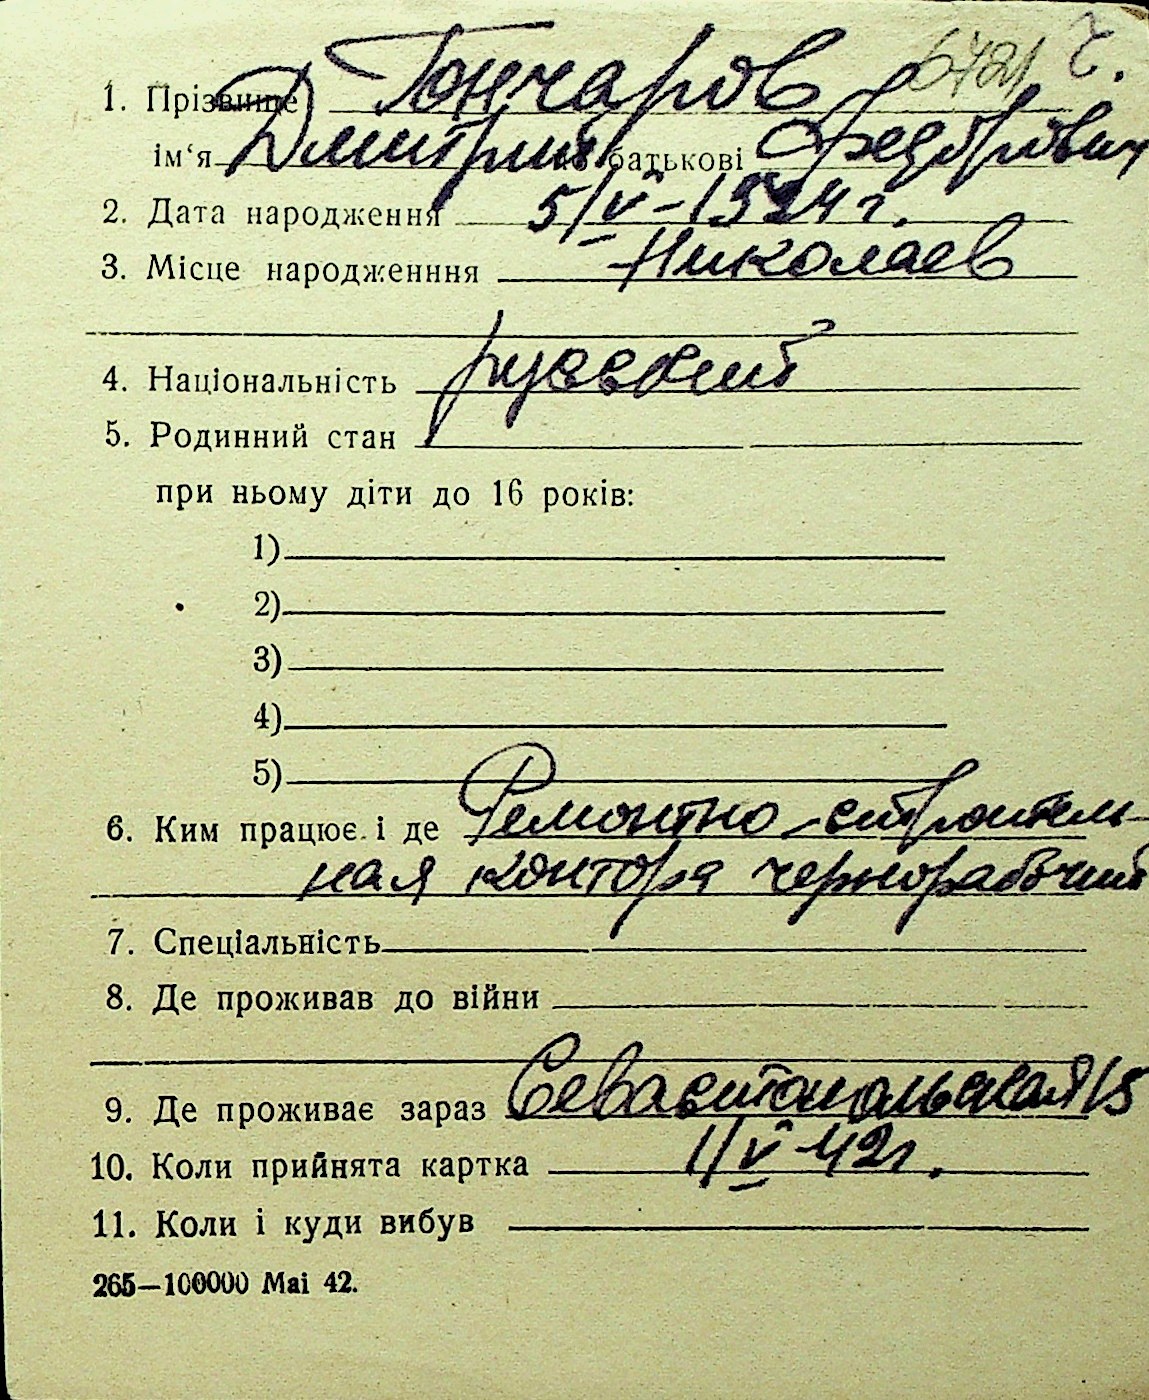 1. Прізвище Гончаров 6421 г.
ім‘я Дмитрий по батькові Федорович
2. Дата народження 5/V-1924 г.
3. Місце народженння Николаев
4. Національність русский
5. Родинний стан
при ньому діти до 16 років:
1)
2)
3)
4)
5)
6. Ким працює і де Ремонтно-строитель-
ная контора чернорабочий
7. Спеціальність
8. Де проживав до війни
9. Де проживає зараз Севастопольская 15
10. Коли прийнята картка 1/V-42г.
11. Коли і куди вибув
265—100000 Mai 42.